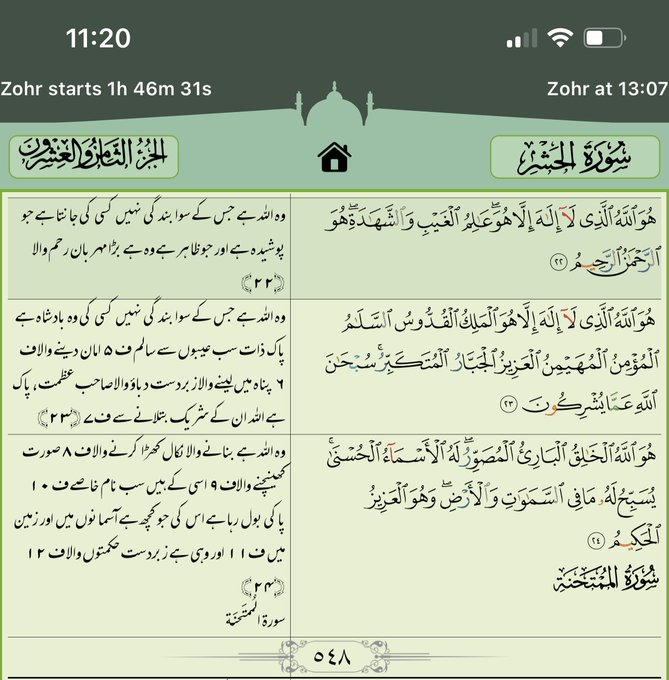 11:20
Zohr starts 1h 46m 31s
Zohr at 13:07
سُورَةُ الحَشْرِ
الجُزْءُ الثَّامِنُ وَالعِشْرُونَ
هُوَ ٱللَّهُ ٱلَّذِى لَآ إِلَـٰهَ إِلَّا هُوَ ۖ عَـٰلِمُ ٱلْغَيْبِ وَٱلشَّهَـٰدَةِ ۖ هُوَ
ٱلرَّحْمَـٰنُ ٱلرَّحِيمُ ٢٢
وہ اللہ ہے جس کے سوا بندگی نہیں کسی کی جانتا ہے جو
پوشیدہ ہے اور جو ظاہر ہے وہ ہے بڑا مہربان رحم والا
﴿۲۲﴾
هُوَ ٱللَّهُ ٱلَّذِى لَآ إِلَـٰهَ إِلَّا هُوَ ٱلْمَلِكُ ٱلْقُدُّوسُ ٱلسَّلَـٰمُ
ٱلْمُؤْمِنُ ٱلْمُهَيْمِنُ ٱلْعَزِيزُ ٱلْجَبَّارُ ٱلْمُتَكَبِّرُ ۚ سُبْحَـٰنَ
ٱللَّهِ عَمَّا يُشْرِكُونَ ٢٣
وہ اللہ ہے جس کے سوا بندگی نہیں کسی کی وہ بادشاہ ہے
پاک ذات سب عیبوں سے سالم ف ۵ امان دینے والا ف
۶ پناہ میں لینے والا زبردست دباؤ والا صاحب عظمت، پاک
ہے اللہ ان کے شریک بتلانے سے ف ۷ ﴿۲۳﴾
هُوَ ٱللَّهُ ٱلْخَـٰلِقُ ٱلْبَارِئُ ٱلْمُصَوِّرُ ۖ لَهُ ٱلْأَسْمَآءُ ٱلْحُسْنَىٰ ۚ
يُسَبِّحُ لَهُۥ مَا فِى ٱلسَّمَـٰوَٰتِ وَٱلْأَرْضِ ۖ وَهُوَ ٱلْعَزِيزُ
ٱلْحَكِيمُ ٢٤
سُورَةُ المُمْتَحنَةِ
وہ اللہ ہے بنانے والا نکال کھڑا کرنے والا ف ۸ صورت
کھینچنے والا ف ۹ اسی کے ہیں سب نام خاصے ف ۱۰
پاکی بول رہا ہے اس کی جو کچھ ہے آسمانوں میں اور زمین
میں ف ۱۱ اور وہی ہے زبردست حکمتوں والا ف ۱۲
﴿۲۴﴾
سورة المُمتَحنَة
٥٤٨